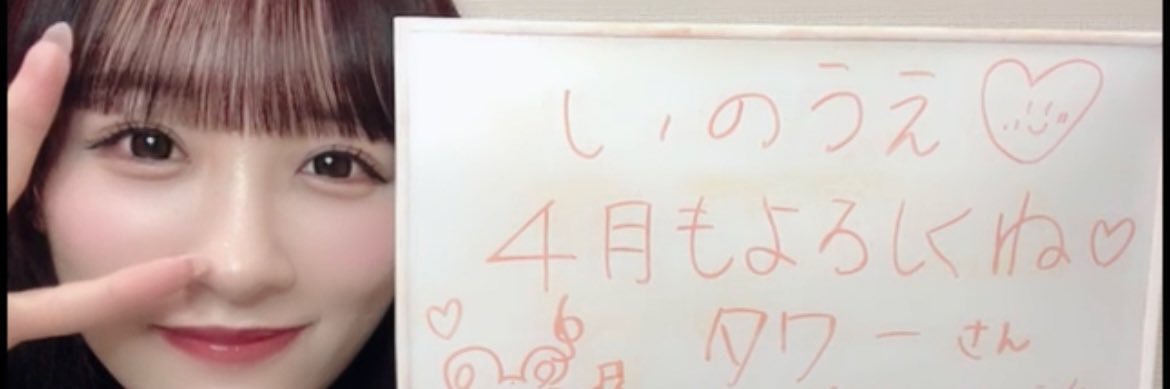 いのうえ♡
4月もよろしくね♡
タワーさん